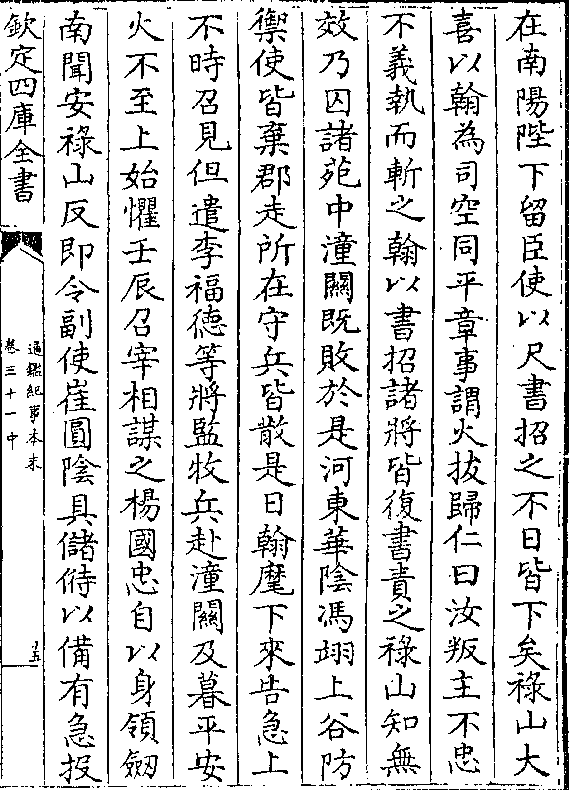 在南陽陛下留臣使以尺書招之不日皆下矣祿山大
喜以翰為司空同平章事謂火拔歸仁曰汝叛主不忠
不義執而斬之翰以書招諸將皆復書責之祿山知無
效乃囚諸苑中潼關既敗於是河東華陰馮翊上谷防
禦使皆棄郡走所在守兵皆散是日翰麾下來告急上
不時召見但遣李福德等將監牧兵赴潼關及暮平安
火不至上始懼壬辰召宰相謀之楊國忠自以身領劒
南聞安祿山反即令副使崔圓陰具儲偫以備有急投
欽定四庫全書
通鑑紀事本末
卷三十一中
五